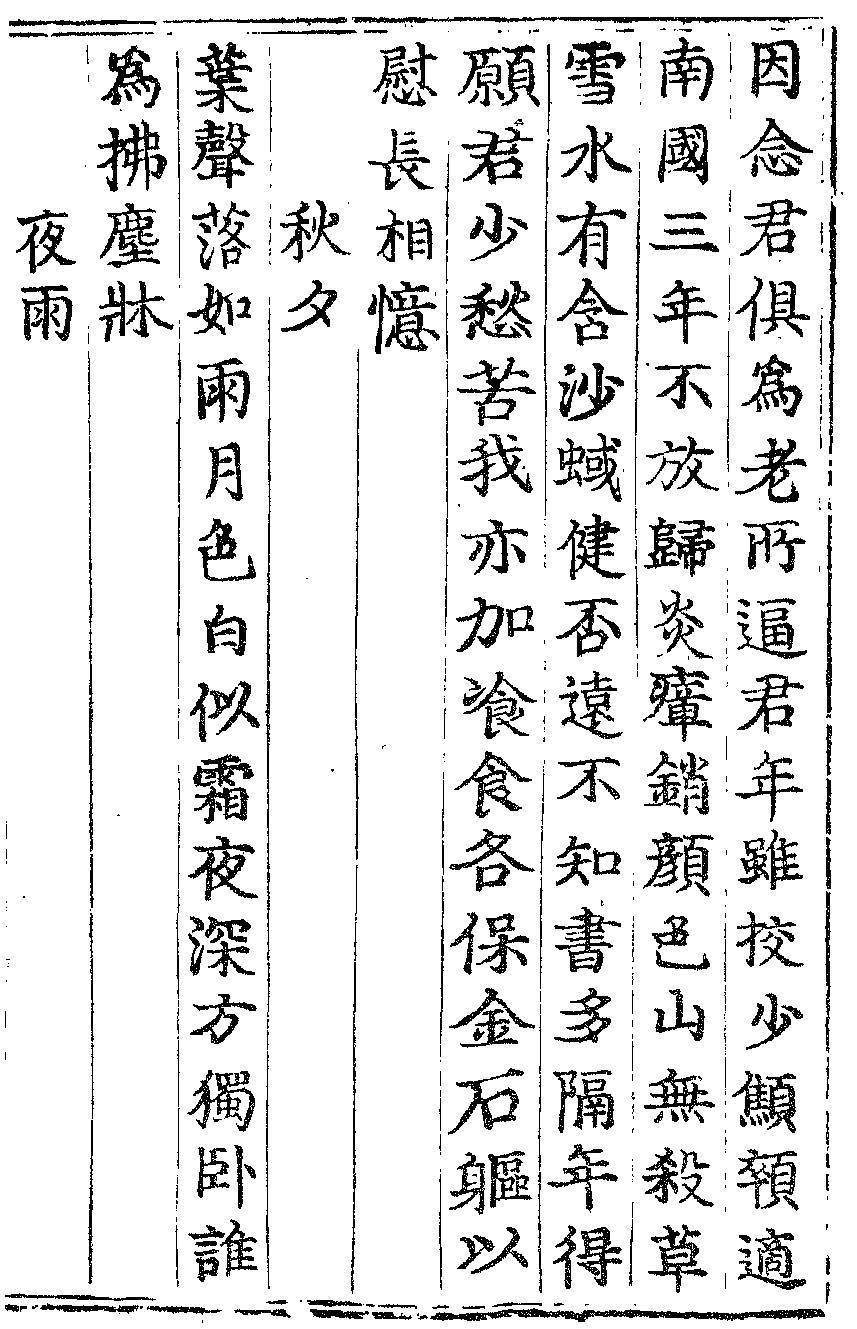 因念君俱爲老所逼君年雖挍少顦顇適
南國三年不放歸炎瘴銷顔色山無殺草
雪水有含沙蜮健否遠不知書多隔年得
願君少愁苦我亦加飡食各保金石軀以
慰長相憶
秋夕
葉聲落如雨月色白似霜夜深方獨卧誰
爲拂塵牀
夜雨